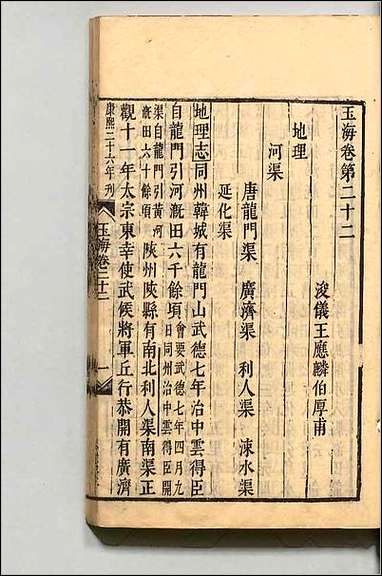 玉海卷第二十二
浚儀王應麟伯厚甫
地理
河渠
唐龍門渠　廣濟渠　利人渠　涑水渠
延化渠
地理志同州韓城有龍門山武德七年治中雲得臣
自龍門引河漑田六千餘頃會要武德七年四月九日同州治中雲得臣開
渠自龍門引黃河漑田六十餘頃陝州陝縣有南北利人渠南渠正
觀十一年太宗東幸使武候將軍丘行恭開有廣濟
康熙二十六年刊
玉海卷二十二
一